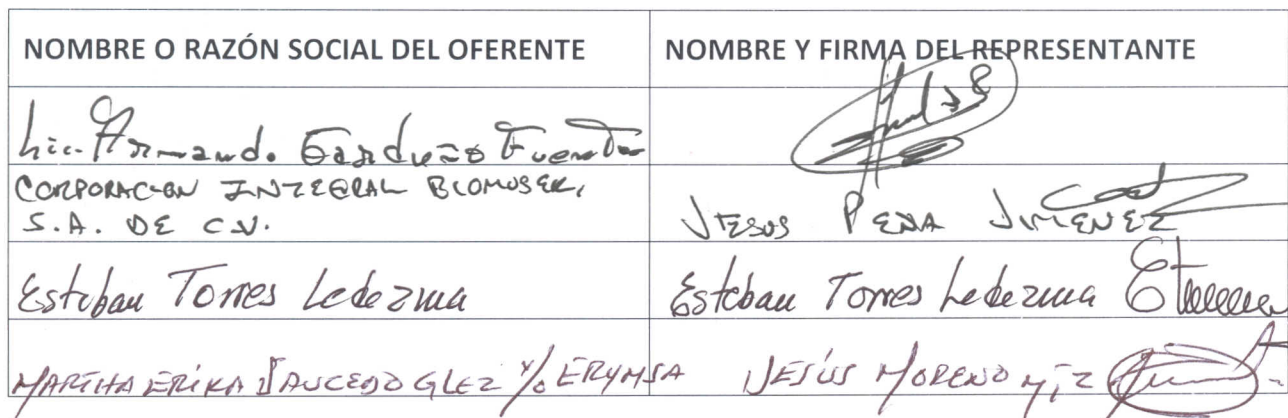 NOMBRE O RAZÓN SOCIAL DEL OFERENTE NOMBRE Y FIRMA DEL REPRESENTANTE
Lic. Armando Garduño Fuentes
CORPORACION INTEGRAL BLOMUSER,
S.A. DE C.V. JESUS PEÑA JIMENEZ
Esteban Torres Ledezma Esteban Torres Ledezma
MARTHA ERIKA SAUCEDO GLEZ Y/O ERYMSA JESÚS MORENO MTZ